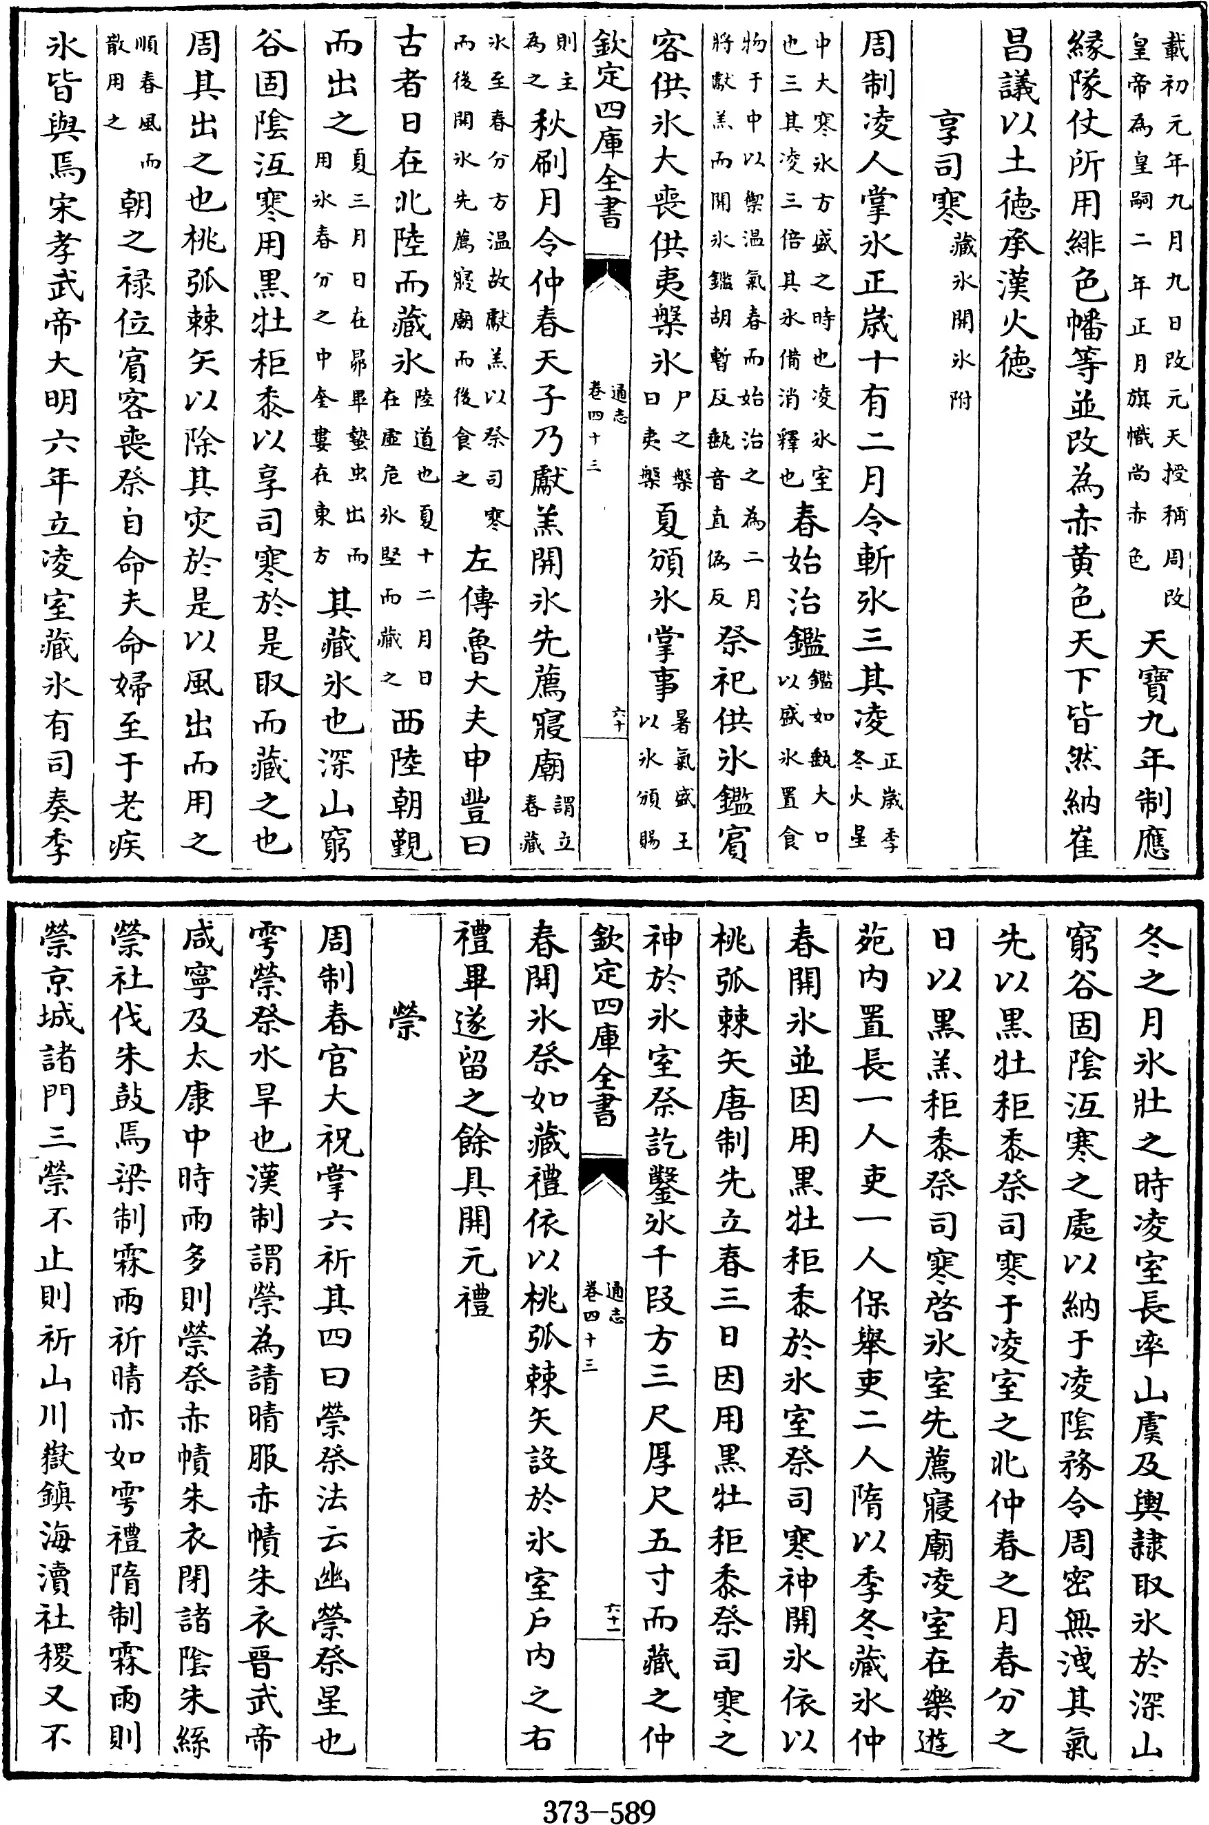 載初元年九月九日改元天授稱周改
皇帝為皇嗣二年正月旗幟尚赤色
天寳九年制應
緣隊仗所用緋色幡等並改為赤黄色天下皆然納崔
昌議以土徳承漢火徳
享司寒藏氷開氷附
周制凌人掌氷正嵗十有二月令斬氷三其凌正嵗季冬火星
中大寒氷方盛之時也凌氷室
也三其凌三倍其氷備消釋也
春始治鑑鑑如甀大口以盛氷置食
物于中以禦温氣春而始治之為二月
將獻羔而開氷鑑胡暫反甀音直偽反
祭祀供氷鑑賔
客供氷大喪供夷槃氷尸之槃曰夷槃夏頒氷掌事暑氣盛王以氷頒賜
欽定四庫全書
通志
卷四十三
六十
則主為之秋刷月令仲春天子乃獻羔開氷先薦寢廟謂立春藏
氷至春分方温故獻羔以祭司寒
而後開氷先薦寢廟而後食之
左傳魯大夫申豐曰
古者日在北陸而藏氷陸道也夏十二月日在虛危氷堅而藏之西陸朝覿
而出之夏三月日在昴畢蟄虫出而用氷春分之中奎婁在東方其藏氷也深山窮
谷固陰沍寒用黒牡秬黍以享司寒於是取而藏之也
周其出之也桃弧棘矢以除其灾於是以風出而用之
順春風而散用之朝之禄位賔客喪祭自命夫命婦至于老疾
氷皆與焉宋孝武帝大明六年立凌室藏氷有司奏季
冬之月氷壯之時凌室長率山虞及輿隷取氷於深山
窮谷固陰沍寒之處以納于凌陰務令周密無洩其氣
先以黒牡秬黍祭司寒于凌室之北仲春之月春分之
日以黒羔秬黍祭司寒啓氷室先薦寢廟凌室在樂遊
苑内置長一人吏一人保舉吏二人隋以季冬藏氷仲
春開氷並因用黒牡秬黍於氷室祭司寒神開氷依以
桃弧棘矢唐制先立春三日因用黒牡秬黍祭司寒之
神於氷室祭訖鑿氷千段方三尺厚尺五寸而藏之仲
欽定四庫全書
通志
卷四十三
六十一
春開氷祭如藏禮依以桃弧棘矢設於氷室戶内之右
禮畢遂留之餘具開元禮
禜
周制春官大祝掌六祈其四曰禜祭法云幽禜祭星也
雩禜祭水旱也漢制謂禜為請晴服赤幘朱衣晉武帝
咸寧及太康中時雨多則禜祭赤幘朱衣閉諸陰朱絲
禜社伐朱鼓焉梁制霖雨祈晴亦如雩禮隋制霖雨則
禜京城諸門三禜不止則祈山川嶽鎮海瀆社稷又不
373-589